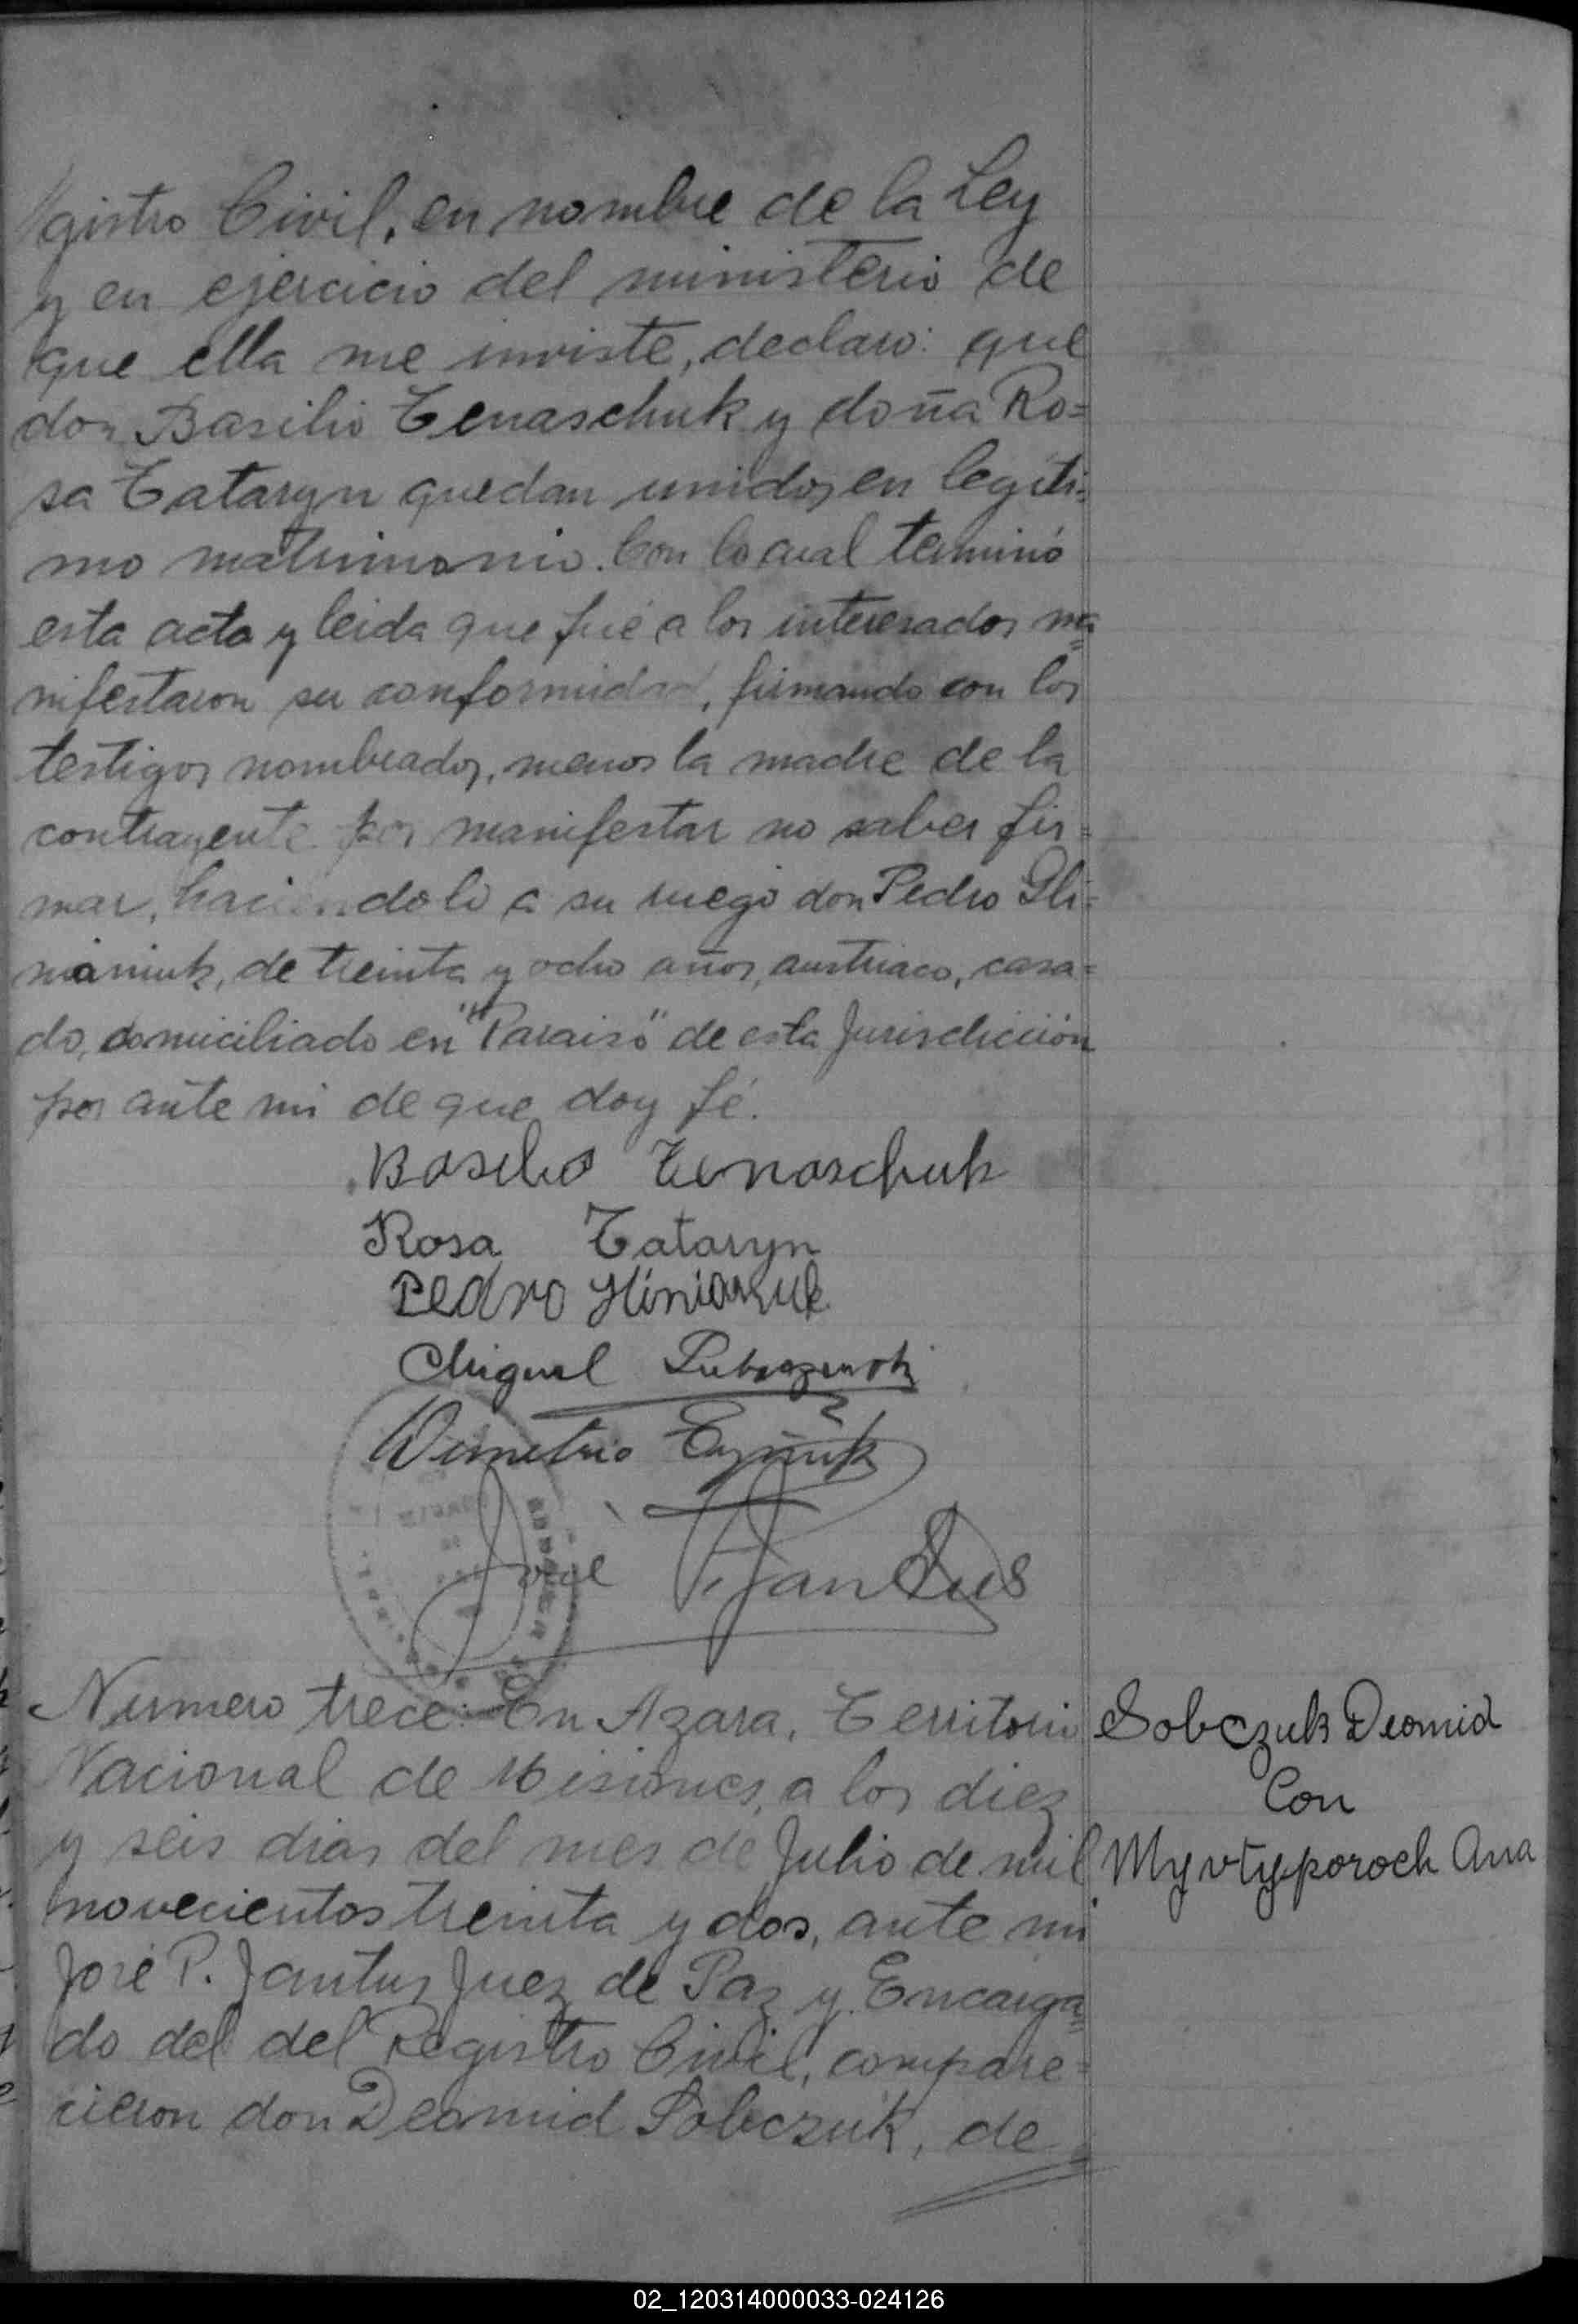 gistro Civil, en nombre de la Ley
y en ejercicio del ministerio de
que ella me inviste, declaro: que
don Basilio Tenaschuk y doña Ro=
sa Tataryn quedan unidos en legíti=
mo matrimonio. Con lo cual terminó
esta acta y leida que fué a los interesados ma=
nifestaron su conformidad, firmando con los
testigos nombrados, menos la madre de la
contrayente por manifestar no saber fir=
mar, haciendolo a su ruego don Pedro Gli=
niániuk, de treinta y ocho años, austriaco, casa=
do, domiciliado en "Paraiso" de esta Jurisdicción
por ante mi de que doy fé.
Basilio Tenaschuk
Rosa Tataryn
Pedro
Miguel
Demetrio
José P. Jantus
Numero trece: En Azara, Territorio
Nacional de Misiones, a los diez
y seis dias del mes de Julio de mil
novecientos treinta y dos, ante mi
José P. Jantus Juez de Paz y Encarga=
do del del Registro Civil, compare=
cieron don Deomid Sobczuk, de
Sobczuk Deomid
Con
Myvtyporoch Ana
02_120314000033-024126